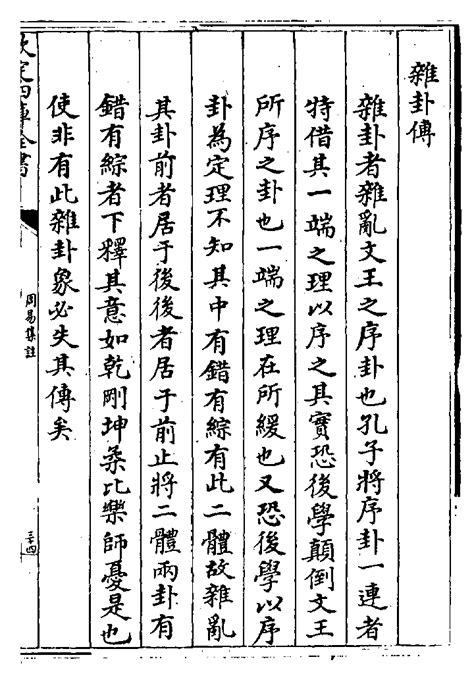 雜卦傳
雜卦者雜亂文王之序卦也孔子將序卦一連者
特借其一端之理以序之其實恐後學顛倒文王
所序之卦也一端之理在所緩也又恐後學以序
卦為定理不知其中有錯有綜有此二體故雜亂
其卦前者居于後後者居于前止將二體兩卦有
錯有綜者下釋其意如乾剛坤柔比樂師憂是也
使非有此雜卦象必失其傳矣
欽定四庫全書
周易集註
三四